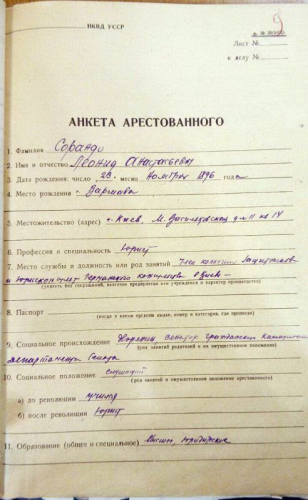 НКВД УССР
9
Лист №
к делу №
АНКЕТА АРЕСТОВАННОГО
1. Фамилия Сорандо
2. Имя и отчество Леонид Анатольевич
3. Дата рождения: число 28. месяц ноября 1896 года
4. Место рождения г. Варшава
5. Местожительство (адрес) г. Киев, М. Васильковская
6. Профессия и специальность Юрист
7. Место службы и должность или род занятий Член коллегии защитников
и юрисконсульт
(указать, без сокращений, название предприятия или учреждения и характер производства)
8. Паспорт
(когда и каким органом выдан, номер и категория, где прописан)
9. Социальное происхождение сенатор гражданского кассационного
(род занятий родителей и их имущественное положение)
департамента Сената
10. Социальное положение служащий
(род занятий и имущественное положение арестованного)
а) до революции
б) после революции Юрист
11. Образование (общее и специальное) Высшее, юридическое